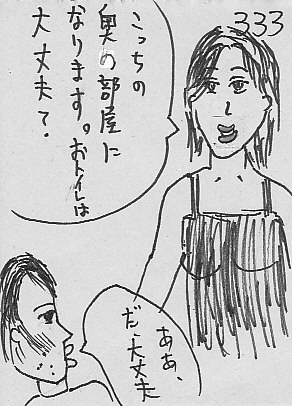 333
こっちの
奥の部屋に
なります。おトイレは
大丈夫?
ああ、
だ、大丈夫